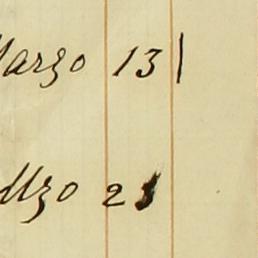 Marzo 13
Mzo 2